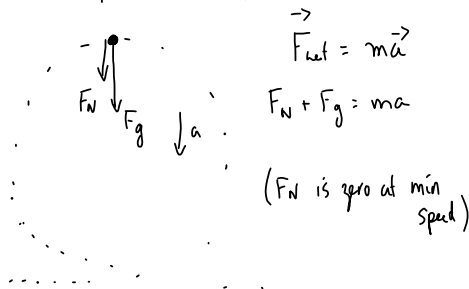 F⃗net = ma⃗
FN + Fg = ma
FN
Fg
a
(FN is zero at min
speed)